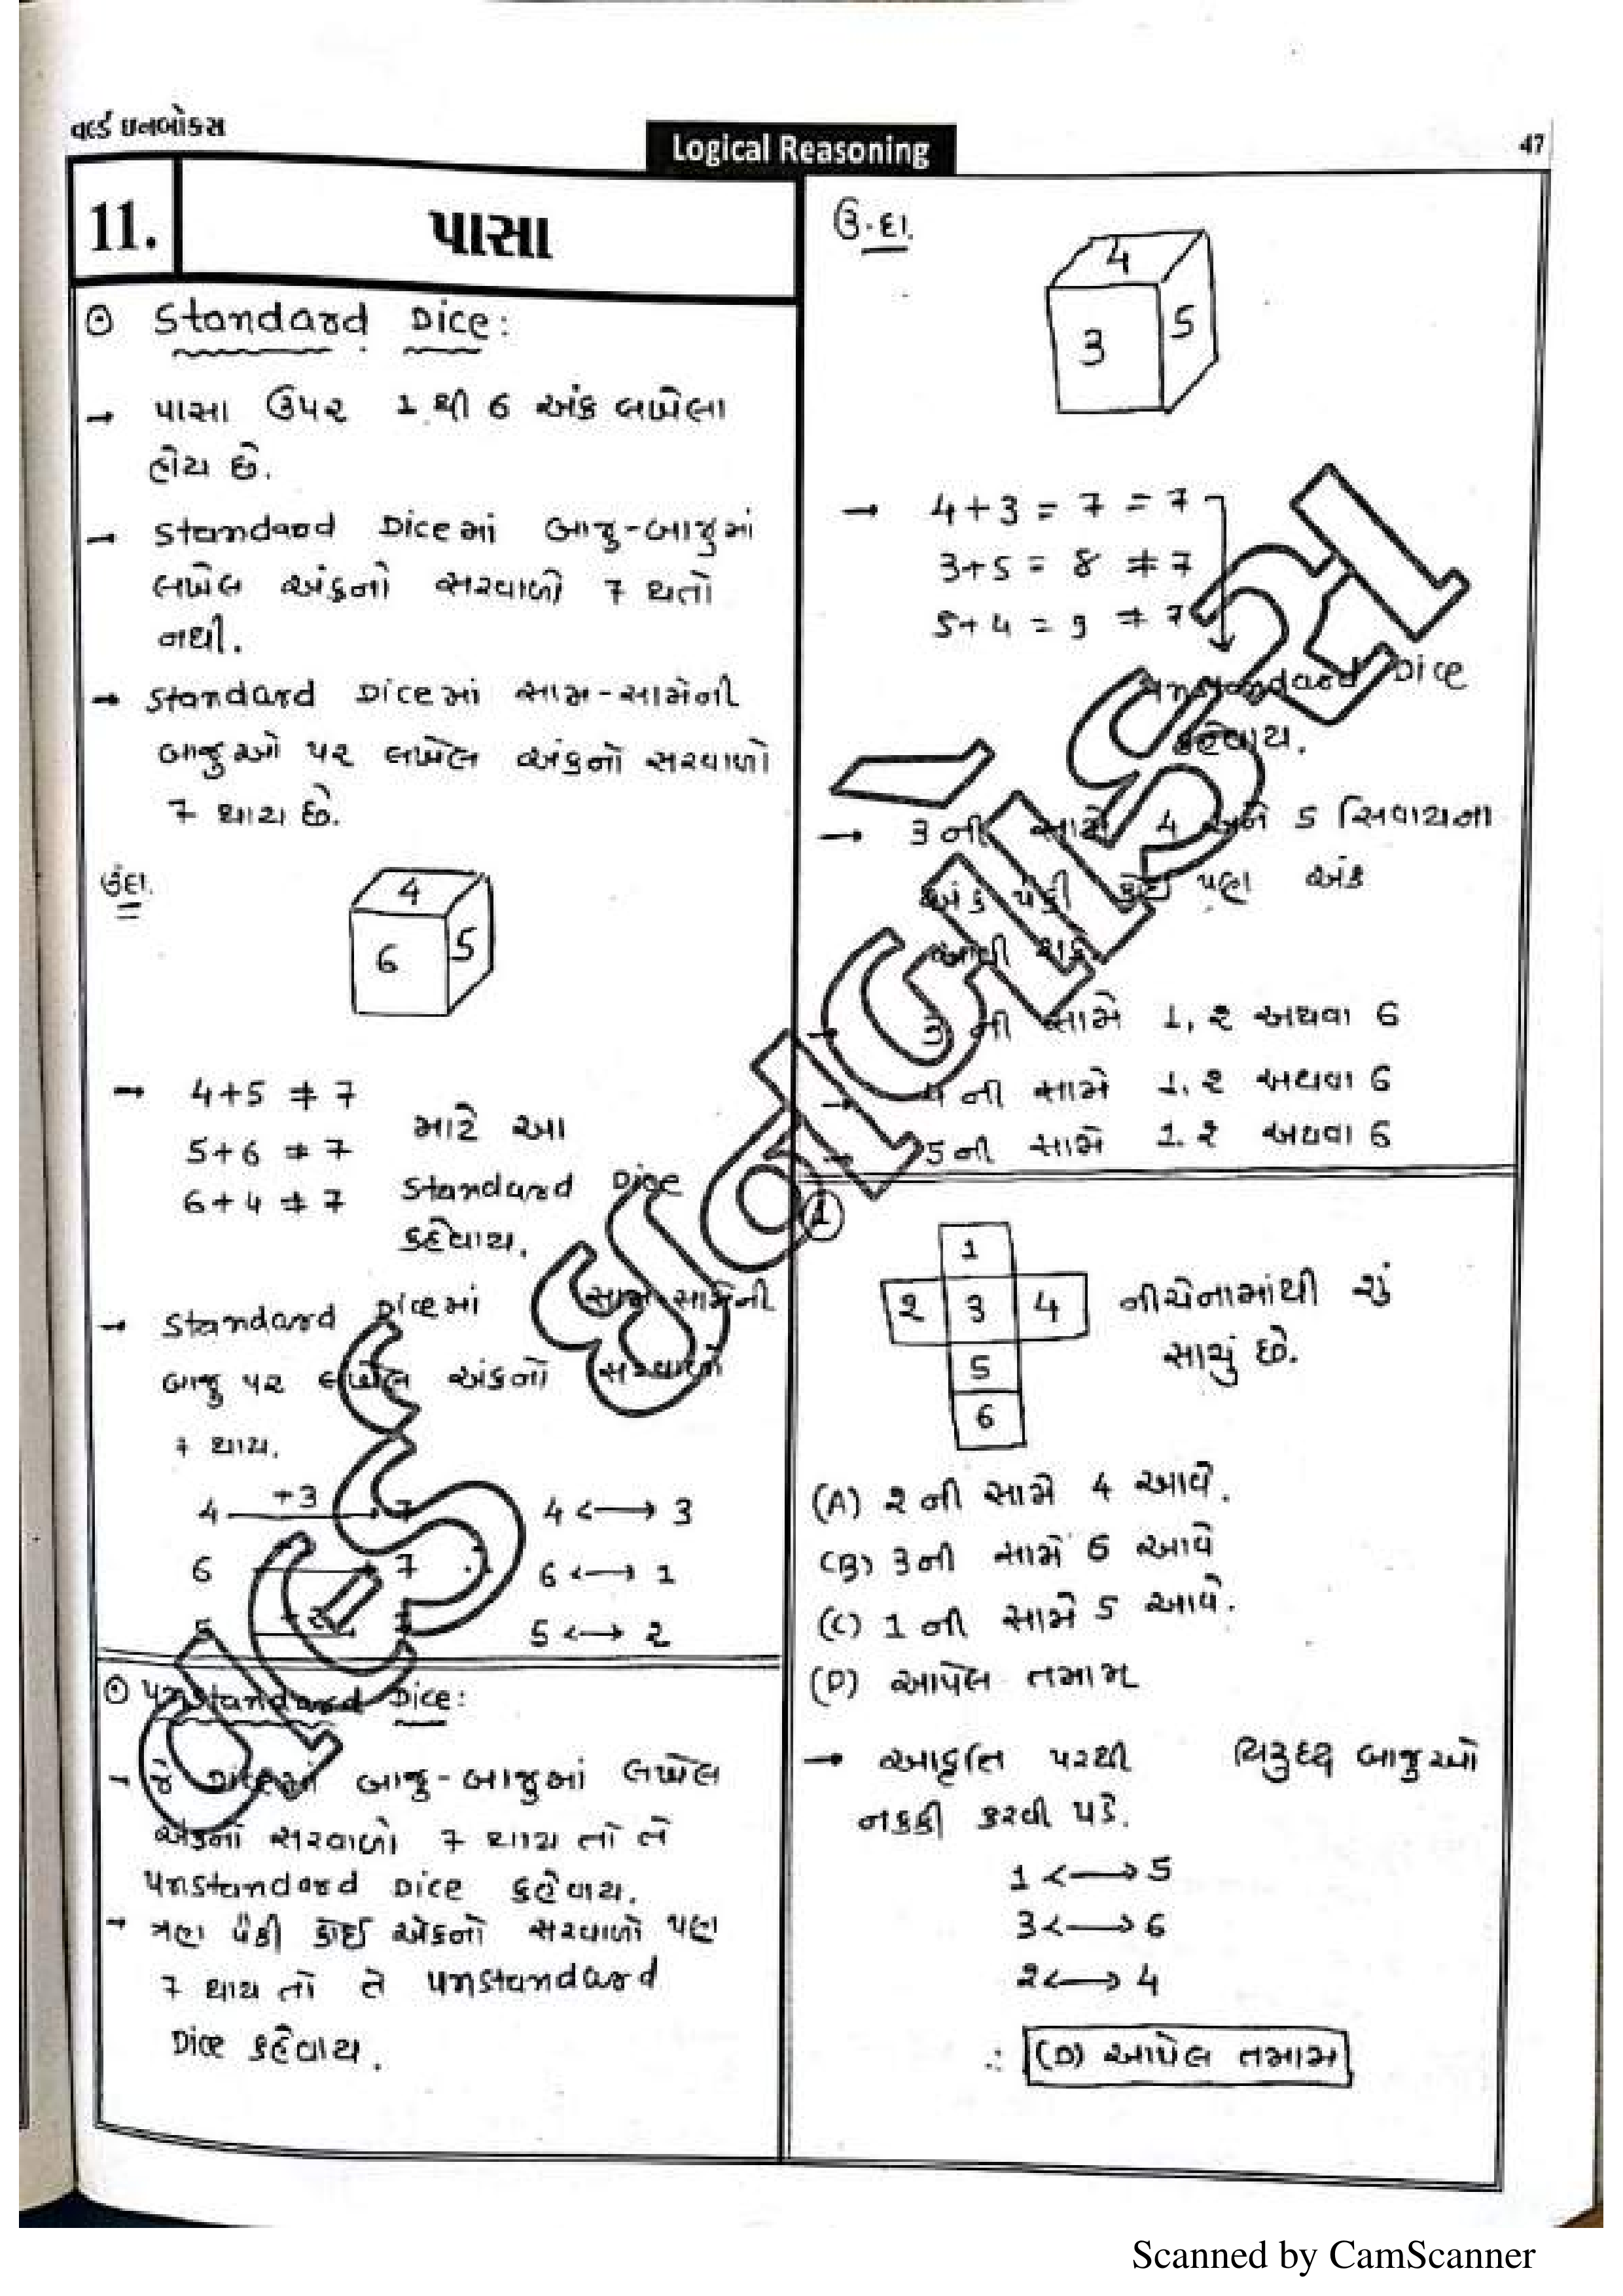 વર્લ્ડ ઇનબોક્સ
Logical Reasoning
47
11.
પાસા
⊙ Standard Dice:
→ પાસા ઉપર 1 થી 6 અંક લખેલા
હોય છે.
→ Standard Diceમાં બાજુ-બાજુમાં
લખેલ અંકનો સરવાળો 7 થતો
નથી.
→ Standard Diceમાં સામ-સામેની
બાજુઓ પર લખેલ અંકનો સરવાળો
7 થાય છે.
ઉદા.
4
6 5
→ 4+5 ≠ 7
5+6 ≠ 7
6+4 ≠ 7
માટે આ
Standard Dice
કહેવાય.
→ Standard Diceમાં સામ-સામેની
બાજુ પર લખેલ અંકનો સરવાળો
7 થાય.
4 +3 → 7 4 ↔ 3
6 → 7 6 ↔ 1
5 5 ↔ 2
⊙ Unstandard Dice:
→ જે Diceમાં બાજુ-બાજુમાં લખેલ
અંકનો સરવાળો 7 થાય તો તે
Unstandard Dice કહેવાય.
→ ત્રણ પૈકી કોઈ એકનો સરવાળો પણ
7 થાય તો તે Unstandard
Dice કહેવાય.
ઉ.દા.
4
3 5
→ 4+3 = 7 = 7
3+5 = 8 ≠ 7
5+4 = 9 ≠ 7
Unstandard Dice
કહેવાય.
→ 3 ની સામે 4 અને 5 સિવાયના
અંક પૈકી કોઈ પણ અંક
આવી શકે
→ 3 ની સામે 1, 2 અથવા 6
→ 4 ની સામે 1, 2 અથવા 6
→ 5 ની સામે 1, 2 અથવા 6
1
1
2 3 4
5
6
નીચેનામાંથી શું
સાચું છે.
(A) 2 ની સામે 4 આવે.
(B) 3 ની સામે 6 આવે
(C) 1 ની સામે 5 આવે.
(D) આપેલ તમામ
→ આકૃતિ પરથી વિરુદ્ધ બાજુઓ
નક્કી કરવી પડે.
1 ↔ 5
3 ↔ 6
2 ↔ 4
∴ (D) આપેલ તમામ
Scanned by CamScanner